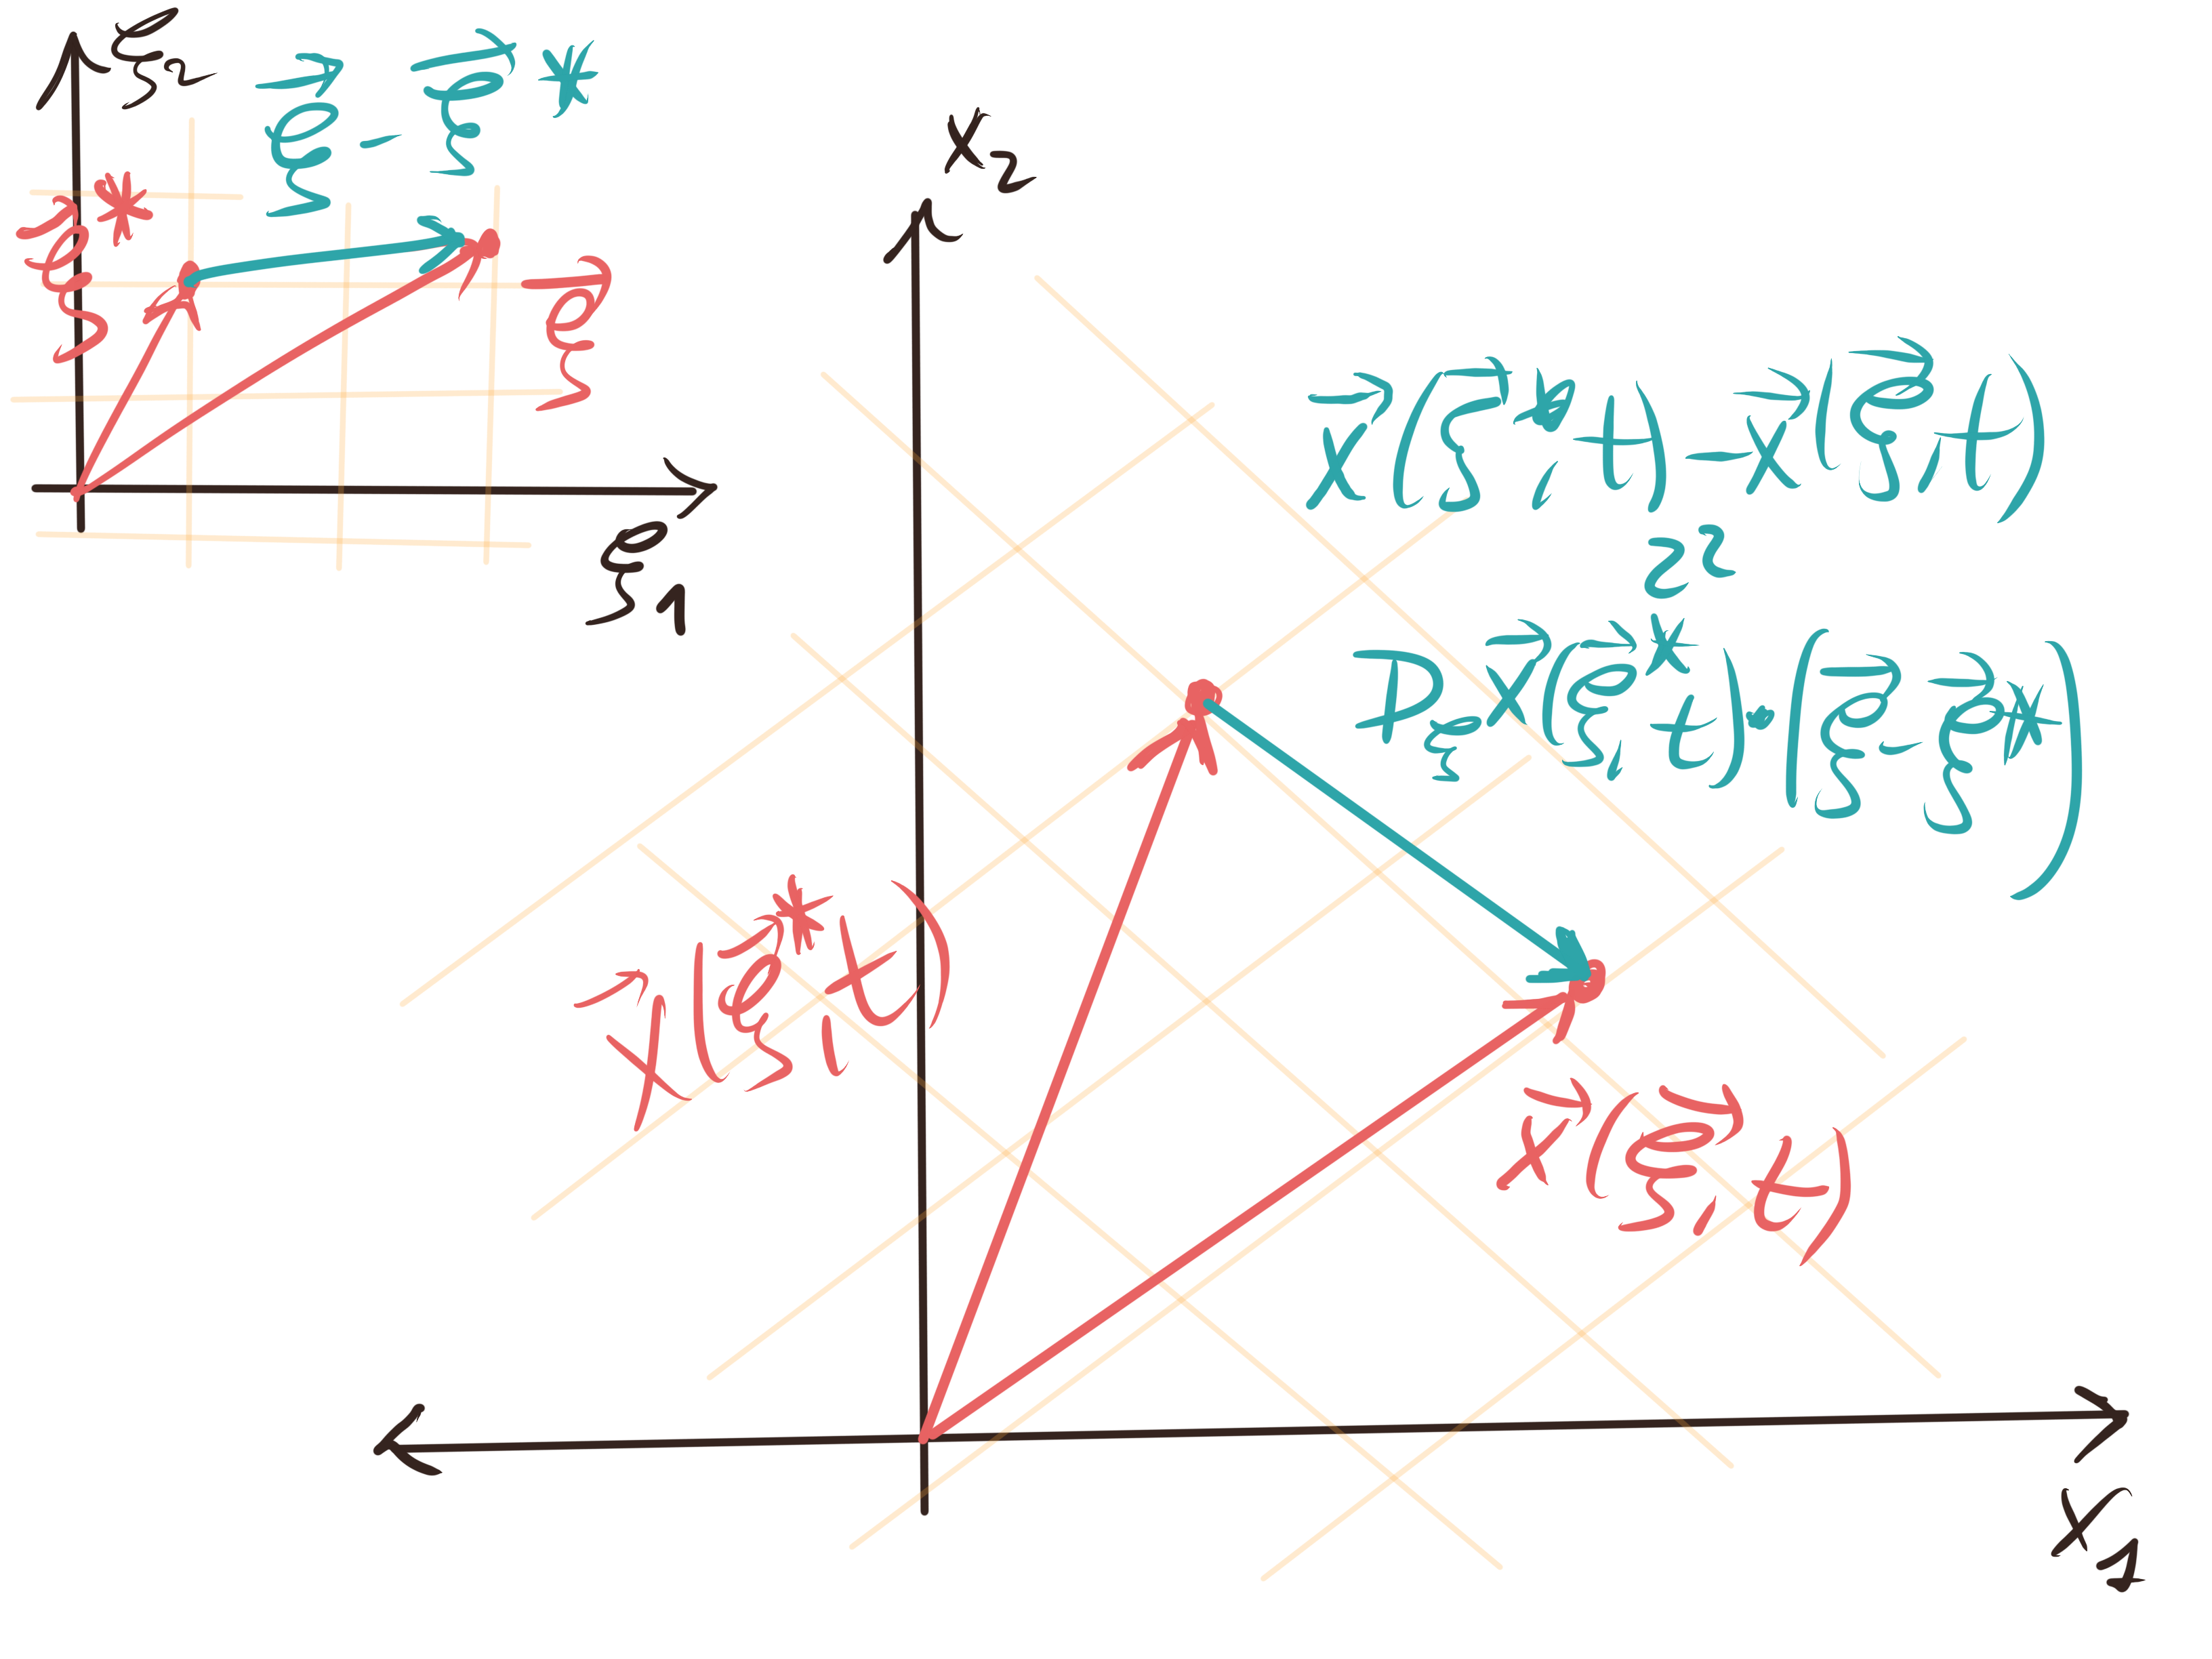 ξ₂
ξ⃗ - ξ⃗*
ξ⃗*
ξ⃗
ξ₁
x₂
x⃗(ξ⃗*,t)-x⃗(ξ⃗,t)
≈
D_ξ x⃗(ξ⃗*,t)·(ξ⃗-ξ⃗*)
x⃗(ξ⃗*,t)
x⃗(ξ⃗,t)
x₁